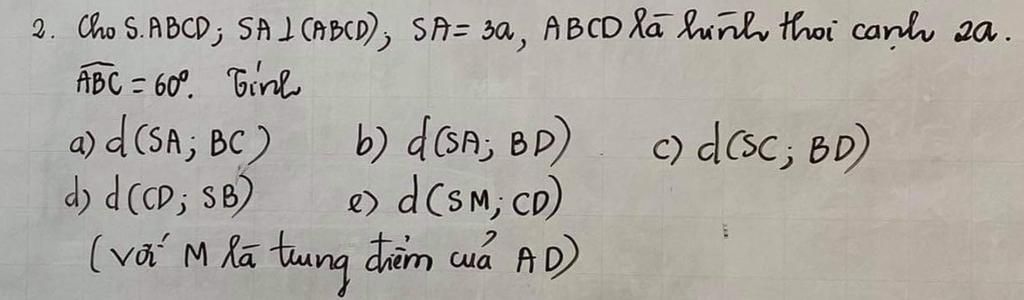 2. Cho S.ABCD; SA⊥(ABCD); SA = 3a, ABCD là hình thoi cạnh 2a.
ABC = 60°. Tính
a) d(SA; BC) b) d(SA; BD) c) d(SC; BD)
d) d(CD; SB) e) d(SM; CD)
(với M là trung điểm của AD)